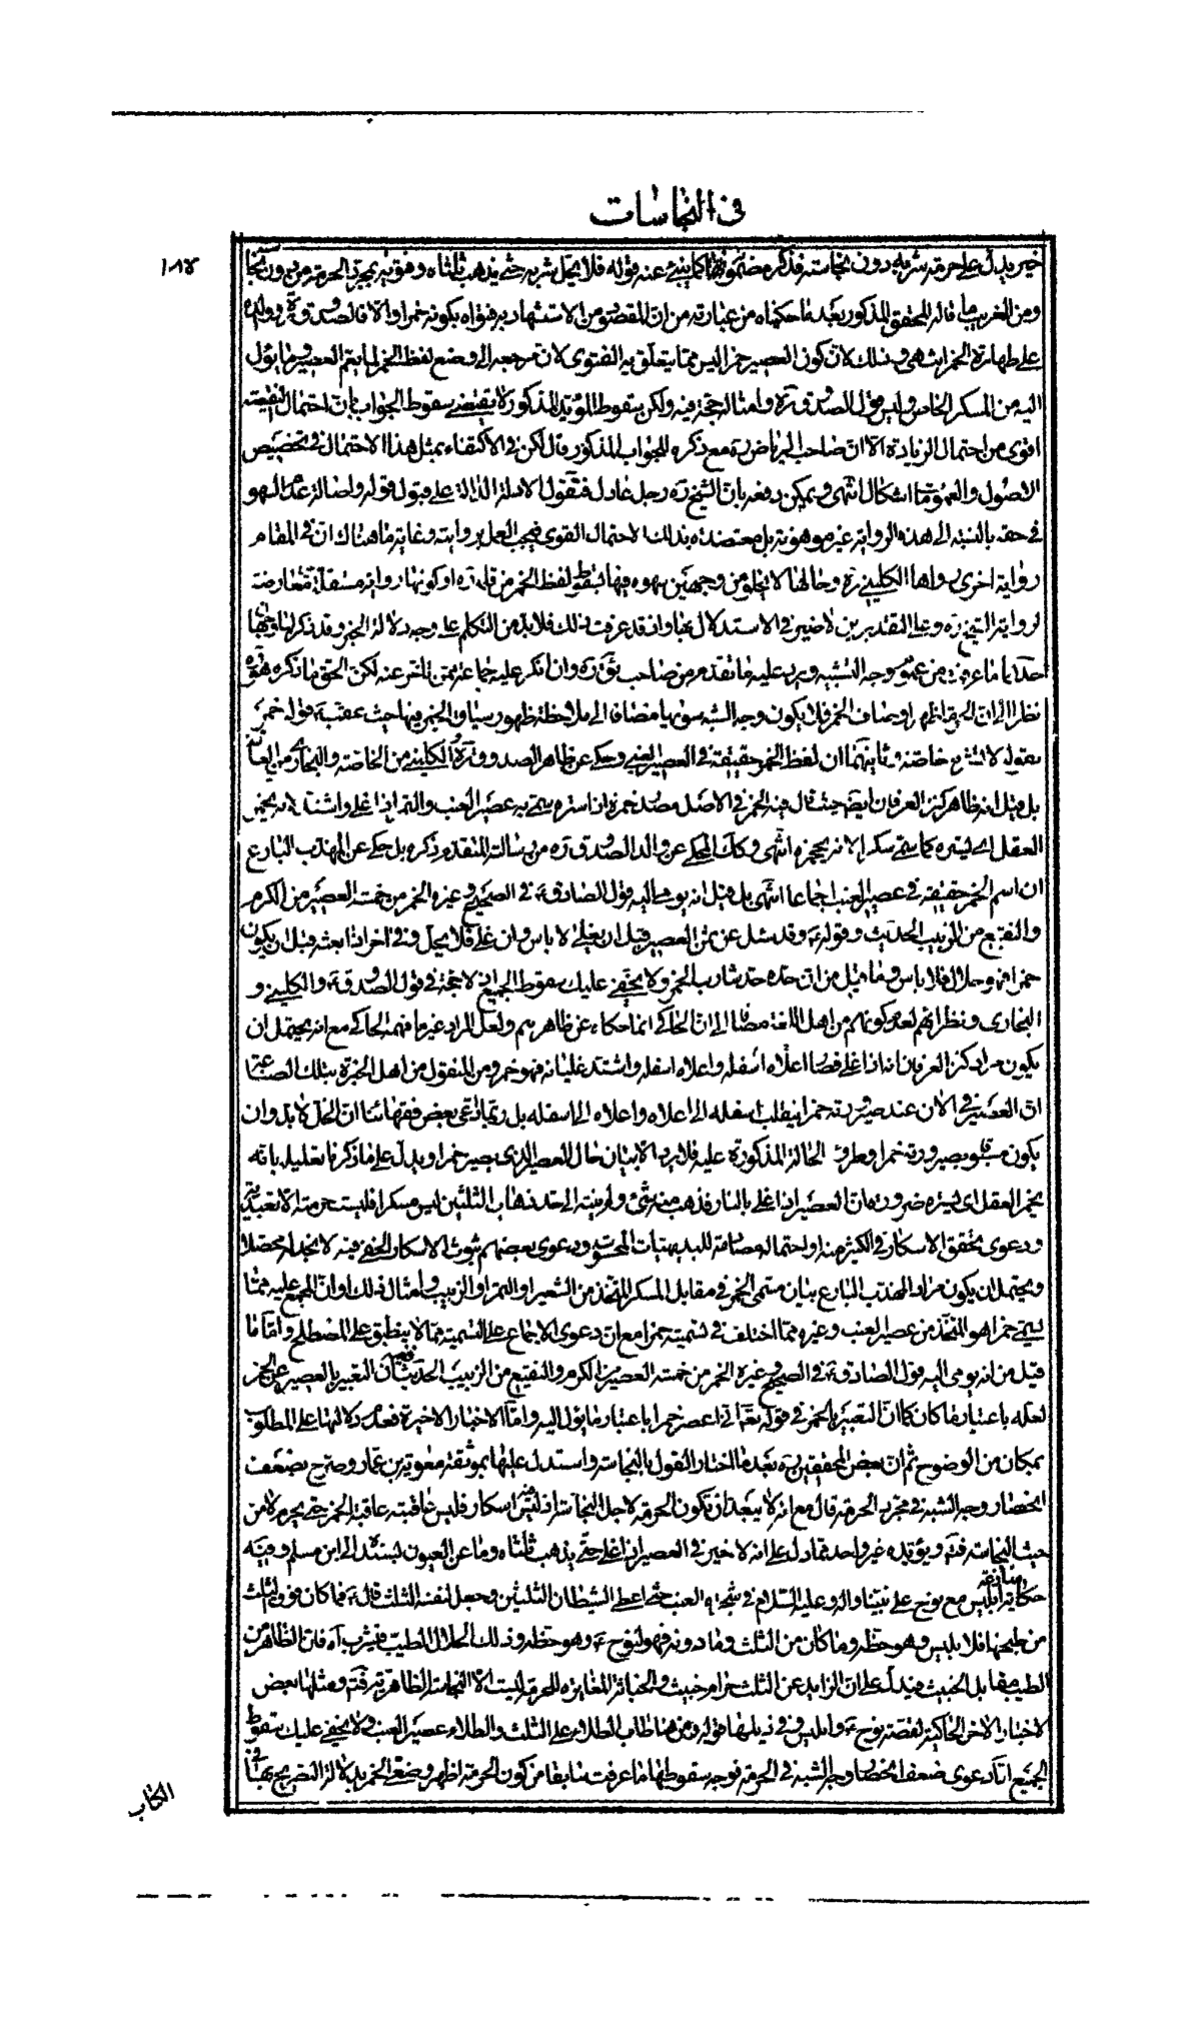 في النجاسات
١٨٧
خبر يدل على حرمة شربه دون نجاسته فذكر مضمونها كما ينبئ عنه قوله فلا يحل شربه حتى يذهب ثلثاه وفتويه بمجرد الحرمة من دون نجاسته
ومن الغريب ما قاله المحقق المذكور بعد ما حكيناه من عبارته من ان المقصود من الاستشهاد به فتواه بكونه خمرا والا فالصدوق ره وولده
على طهارة الخمر انتهى وذلك لان كون العصير خمرا ليس مما يتعلق به الفتوى لان مرجعه الى وضع لفظ الخمر لما يعم العصير وما يؤل
اليه من المسكر الخاص وليس قول الصدوق ره وامثاله حجة فيه ولكن سقوط المؤيد المذكور لا يقتضي سقوط الجواب بان احتمال النقيصة
اقوى من احتمال الزيادة الا ان صاحب الرياض ره مع ذكره للجواب المذكور قال لكن في الاكتفاء بمثل هذا الاحتمال في تخصيص
الاصول والعمومات اشكال انتهى ويمكن دفعه بان الشيخ ره رجل عادل فنقول الادلة الدالة على قبول قوله واصالة عدم السهو
في حقه بالنسبة الى هذه الرواية غير موهونة بل معتضدة بذلك الاحتمال القوى فيجب العمل بروايته وغاية ما هناك ان في المقام
رواية اخرى رواها الكليني ره وحالها لا يخلو من وجهين سهوه فيها بسقوط لفظ الخمر من قلمه ره او كونها رواية مستقلة متعارضة
لرواية الشيخ ره وعلى التقديرين لا ضير في الاستدلال بها واذ قد عرفت ذلك فلا بد من التكلم على وجه دلالة الخبر وقد ذكر لها وجهان
احدهما ما عرفت من عموم وجه التشبيه ويرد عليه ما تقدم من صاحب ئق ره وان انكر عليه جماعة ممن تاخر عنه لكن الحق ما ذكره هو ره
نظرا الى ان الحرمة اظهر اوصاف الخمر فلا يكون وجه الشبه سويها مضافا الى ملاحظة ظهور سياق الخبر فيها حيث عقب قوله خمر
بقوله لا تشربه خاصة وثانيهما ان لفظ الخمر حقيقة في العصير العنبي وحكى عن ظاهر الصدوق ره والكليني من الخاصة والبخاري من العامة
بل قيل انه ظاهر كنز العرفان ايضا حيث قال فيه الخمر في الاصل مصدر خمره اذا ستره سمى به عصير العنب والتمر اذا غلى واشتد لانه يخمر
العقل اي يستره كما سمى سكرا لانه يحجزه انتهى وكذا المحكي عن والد الصدوق ره من رسالته المتقدم ذكره بل حكى عن المهذب البارع
ان اسم الخمر حقيقة في عصير العنب اجماعا انتهى بل قيل انه يومي اليه قول الصادق ع في الصحيح وغيره الخمر من خمسة العصير من الكرم
والنقيع من الزبيب الحديث وقوله ع وقد سئل عن ثمن العصير قبل ان يغلى لا باس وان غلى فلا يحل وفي اخر اذا بعته قبل ان يكون
خمرا فهو حلال فلا باس وما قيل من ان حده حد شارب الخمر ولا يخفى عليك سقوط الجميع اذ لا حجة في قول الصدوق ره والكليني و
البخاري ونظرائهم لعدم كونهم من اهل اللغة مضافا الى ان الحاكي انما حكاه عن ظاهرهم ولعل المراد غير ما فهمه الحاكي مع انه يحتمل ان
يكون مراد كنز العرفان انه اذا غلى فصار اعلاه اسفله واعلاه اسفله واشتد غليانه فهو خمر ومن المنقول من اهل الخبرة بتلك الصناعة
ان العصير في الان عند صيرورته خمرا ينقلب اسفله الى اعلاه واعلاه الى اسفله بل ربما ادعى بعض فقهائنا ان الخل لا بد وان
يكون مسبوقا بصيرورته خمرا وطرو الحالة المذكورة عليه فلا يرد الا بيان حال العصير الذي يصير خمرا ويدل على ما ذكرنا تعليله بانه
يخمر العقل اي يستره ضرورة ان العصير اذا غلى بالنار فذهب منه شئ ولم ينته الى حد ذهاب الثلثين ليس مسكرا فليست حرمته الا تعبدية
ودعوى تحقق الاسكار في الكثير منه او احتماله مصادمة للبديهيات المحسوسة ودعوى بعضهم ثبوت الاسكار الخفي فيه لا نجد له محصلا
ويحتمل ان يكون مراد المهذب البارع بيان مسمى الخمر في مقابل المسكر المتخذ من الشعير او التمر او الزبيب وامثال ذلك او ان المجمع عليه مما
يسمى خمرا هو المتخذ من عصير العنب وغيره مما اختلف في تسميته خمرا مع ان دعوى الاجماع على التسمية مما لا ينطبق على المصطلح واما ما
قيل من انه يومى اليه قول الصادق ع في الصحيح وغيره الخمر من خمسة العصير من الكرم والنقيع من الزبيب الحديث ففيه ان التعبير بالعصير عن الخمر
لعله باعتبار ما كان كما ان التعبير بالخمر في قوله تعالى اني اعصر خمرا باعتبار ما يؤل اليه واما الاخبار الاخيرة فعدم دلالتها على المطلوب
بمكان من الوضوح ثم ان بعض المحققين ره بعد ما اختار القول بالنجاسة واستدل عليها بموثقة معوية بن عمار وصرح بضعف
انحصار وجه الشبه في مجرد الحرمة قال مع انه لا يبعد ان تكون الحرمة لاجل النجاسة اذ ليس فيه اسكار فليس عاقبته عاقبة الخمر حتى يحرم لا من
حيث النجاسة فتم ويؤيده غير واحد مما دل على انه لا خير في العصير اذا غلى حتى يذهب ثلثاه وما عن العيون بسنده الى ابن مسلم وفيه
حكاية منازعة ابليس مع نوح على نبينا وآله وعليه السلام في شجرة العنب حتى اعطى الشيطان الثلثين وجعل لنفسه الثلث قال ع فما كان فوق الثلث
من طبخها فلابليس وهو حظه وما كان من الثلث وما دونه فهو لنوح ع وهو حظه وذلك الحلال الطيب فيشرب آه فان الظاهر من
الطيب مقابل الخبيث فيدل على ان الزايد عن الثلث حرام خبيث والخباثة المغايرة للحرمة ليست الا النجاسة الظاهرية فتم ومثلها بعض
الاخبار الاخر الحاكية لقصة نوح ع وابليس وفي ذيلها قوله ومن هنا طاب الطلاء على الثلث والطلاء عصير العنب ولا يخفى عليك سقوط
الجميع اما دعوى ضعف انحصار وجه الشبه في الحرمة فوجه سقوطها ما عرفت سابقا من كون الحرمة اظهر وصفي الخمر بدلالة التصريح بها في
الكتاب